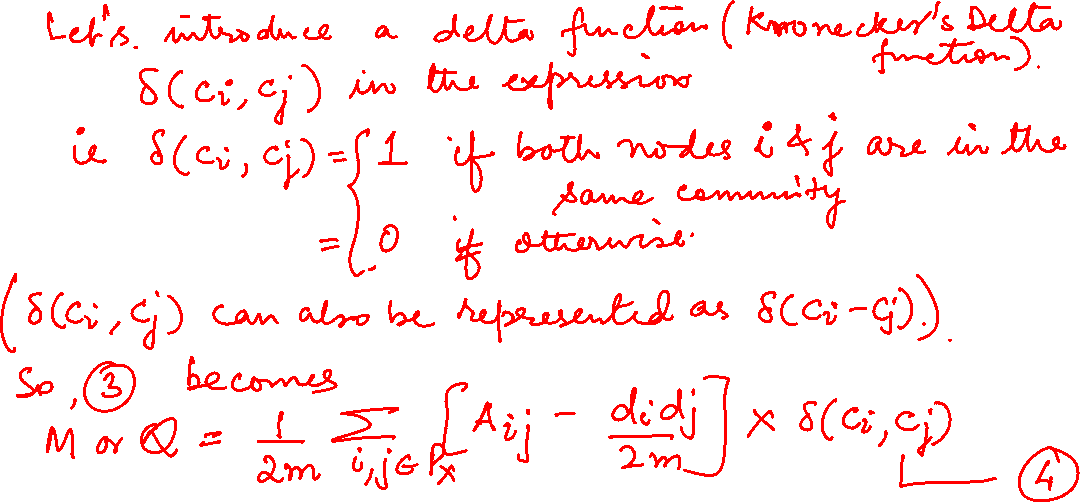 Let's. introduce a delta function (Kronecker's Delta function).
δ(ci, cj) in the expression
ie δ(ci, cj) = { 1 if both nodes i & j are in the same community
= { 0 if otherwise.
(δ(ci, cj) can also be represented as δ(ci - cj).).
So, ③ becomes
M or Q = 1/2m Σ i,j∈Px [Aij - didj/2m] × δ(ci, cj) ④